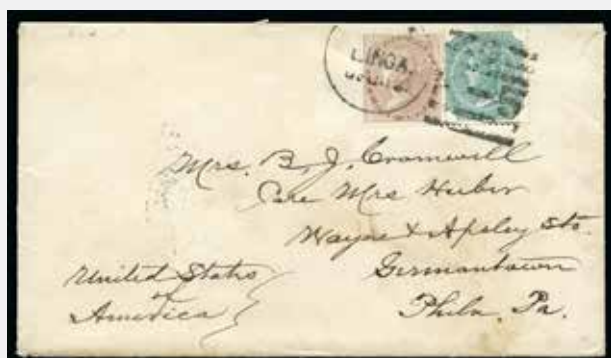 LINGA.
Mrs. B. J. Cromwill
Care Mrs Huber
Wayne & Apsley Sts.
Germantown
Phila. Pa.
United States
of
America